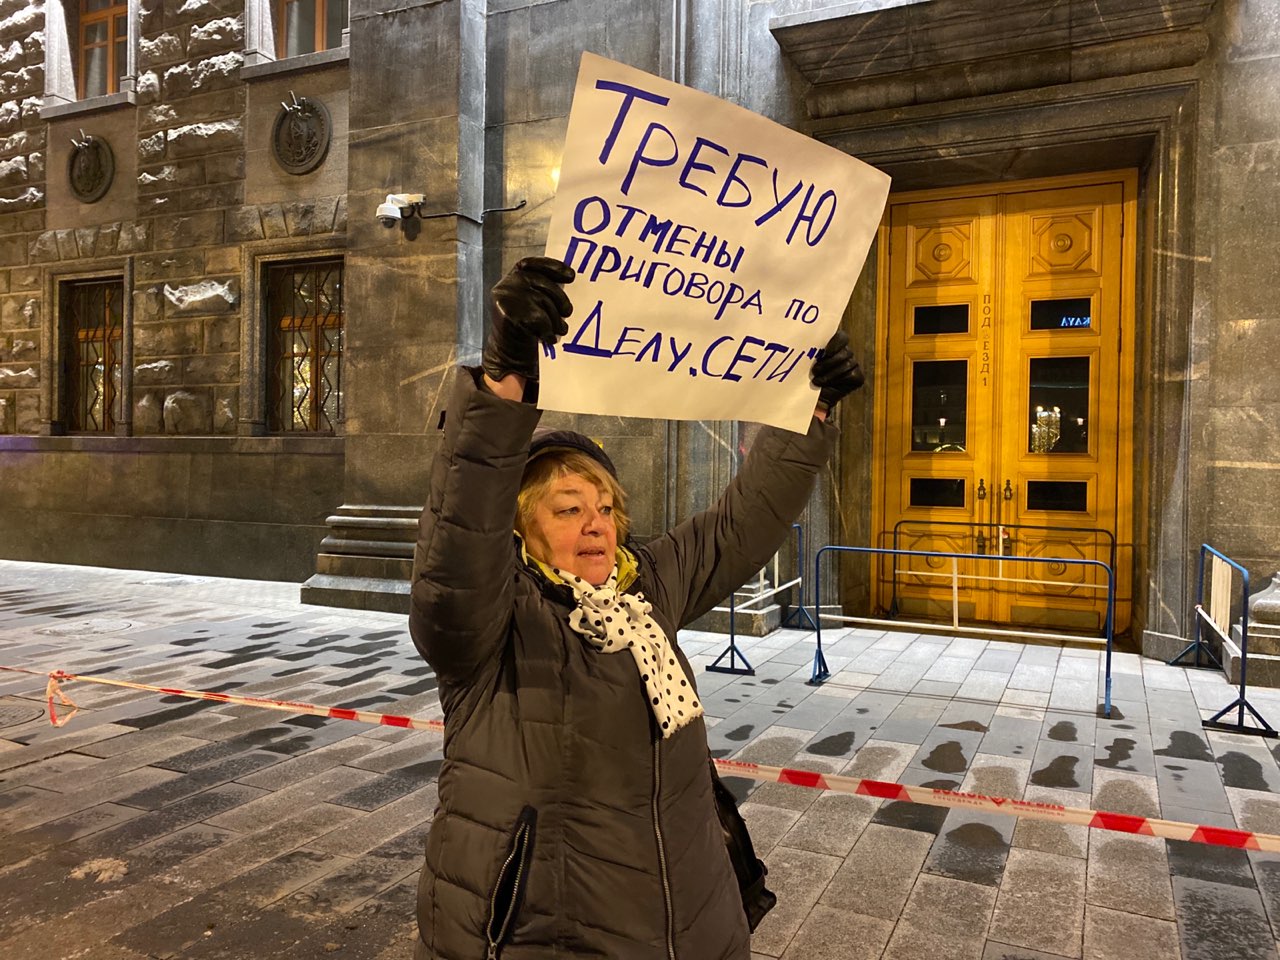 ТРЕБУЮ
ОТМЕНЫ
ПРИГОВОРА ПО
"ДЕЛУ.СЕТИ"
ПОДЪЕЗД 1